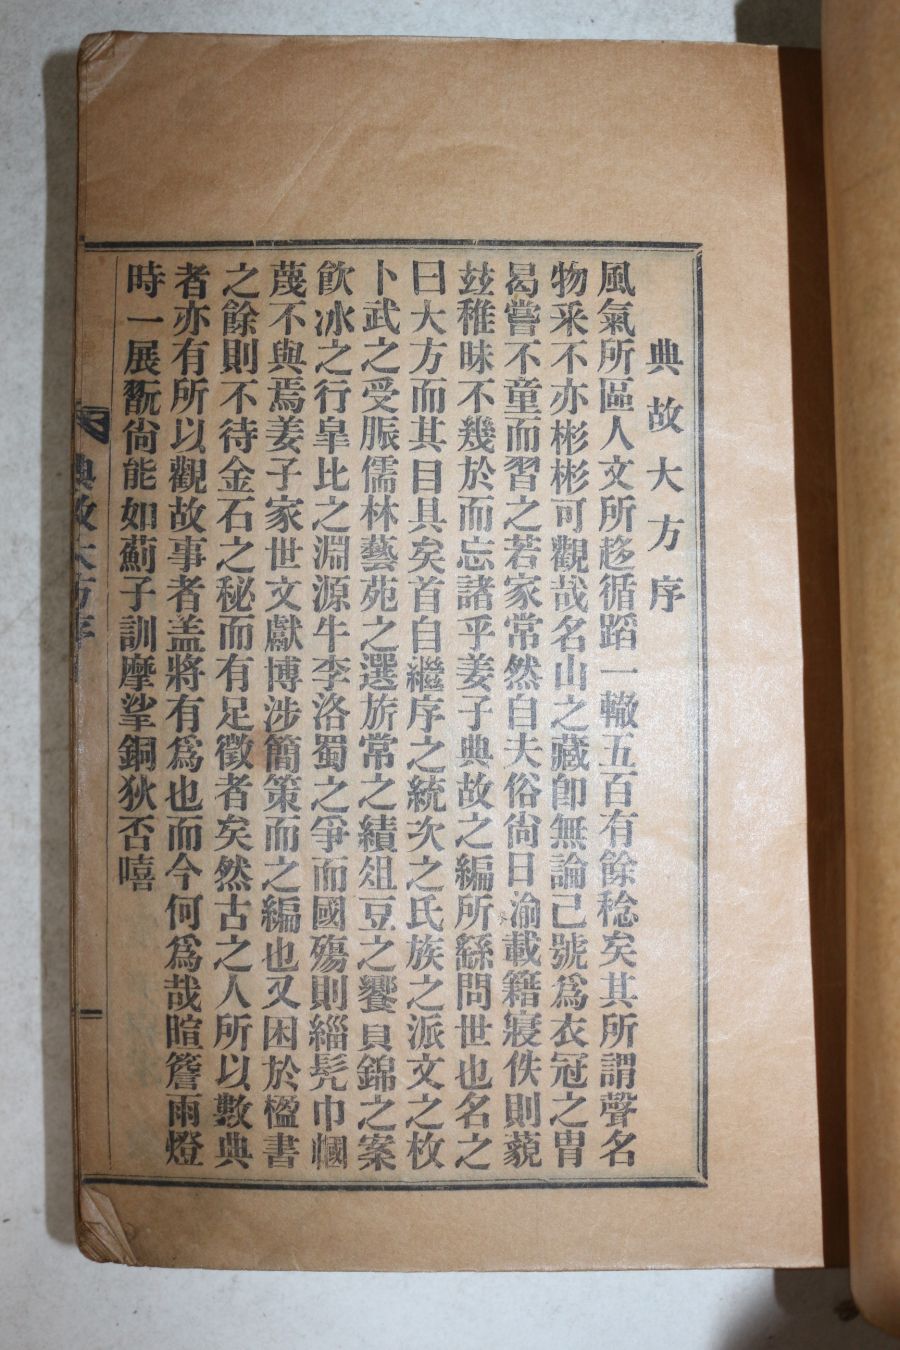 典故大方序
風氣所區人文所趍循蹈一轍五百有餘稔矣其所謂聲名
物采不亦彬彬可觀哉名山之藏卽無論已號爲衣冠之冑
曷嘗不童而習之若家常然自夫俗尙日渝載籍寢佚則藐
玆稚昧不幾於而忘諸乎姜子典故之編所繇問世也名之
曰大方而其目具矣首自繼序之統次之氏族之派文之枚
卜武之受脤儒林藝苑之選旂常之績俎豆之饗貝錦之案
飮冰之行皐比之淵源牛李洛蜀之爭而國殤則緇髠巾幗
蔑不與焉姜子家世文獻博涉簡策而之編也又困於楹書
之餘則不待金石之秘而有足徵者矣然古之人所以數典
者亦有所以觀故事者盖將有爲也而今何爲哉暄簷雨燈
時一展翫尙能如薊子訓摩挲銅狄否嘻
典故大方序